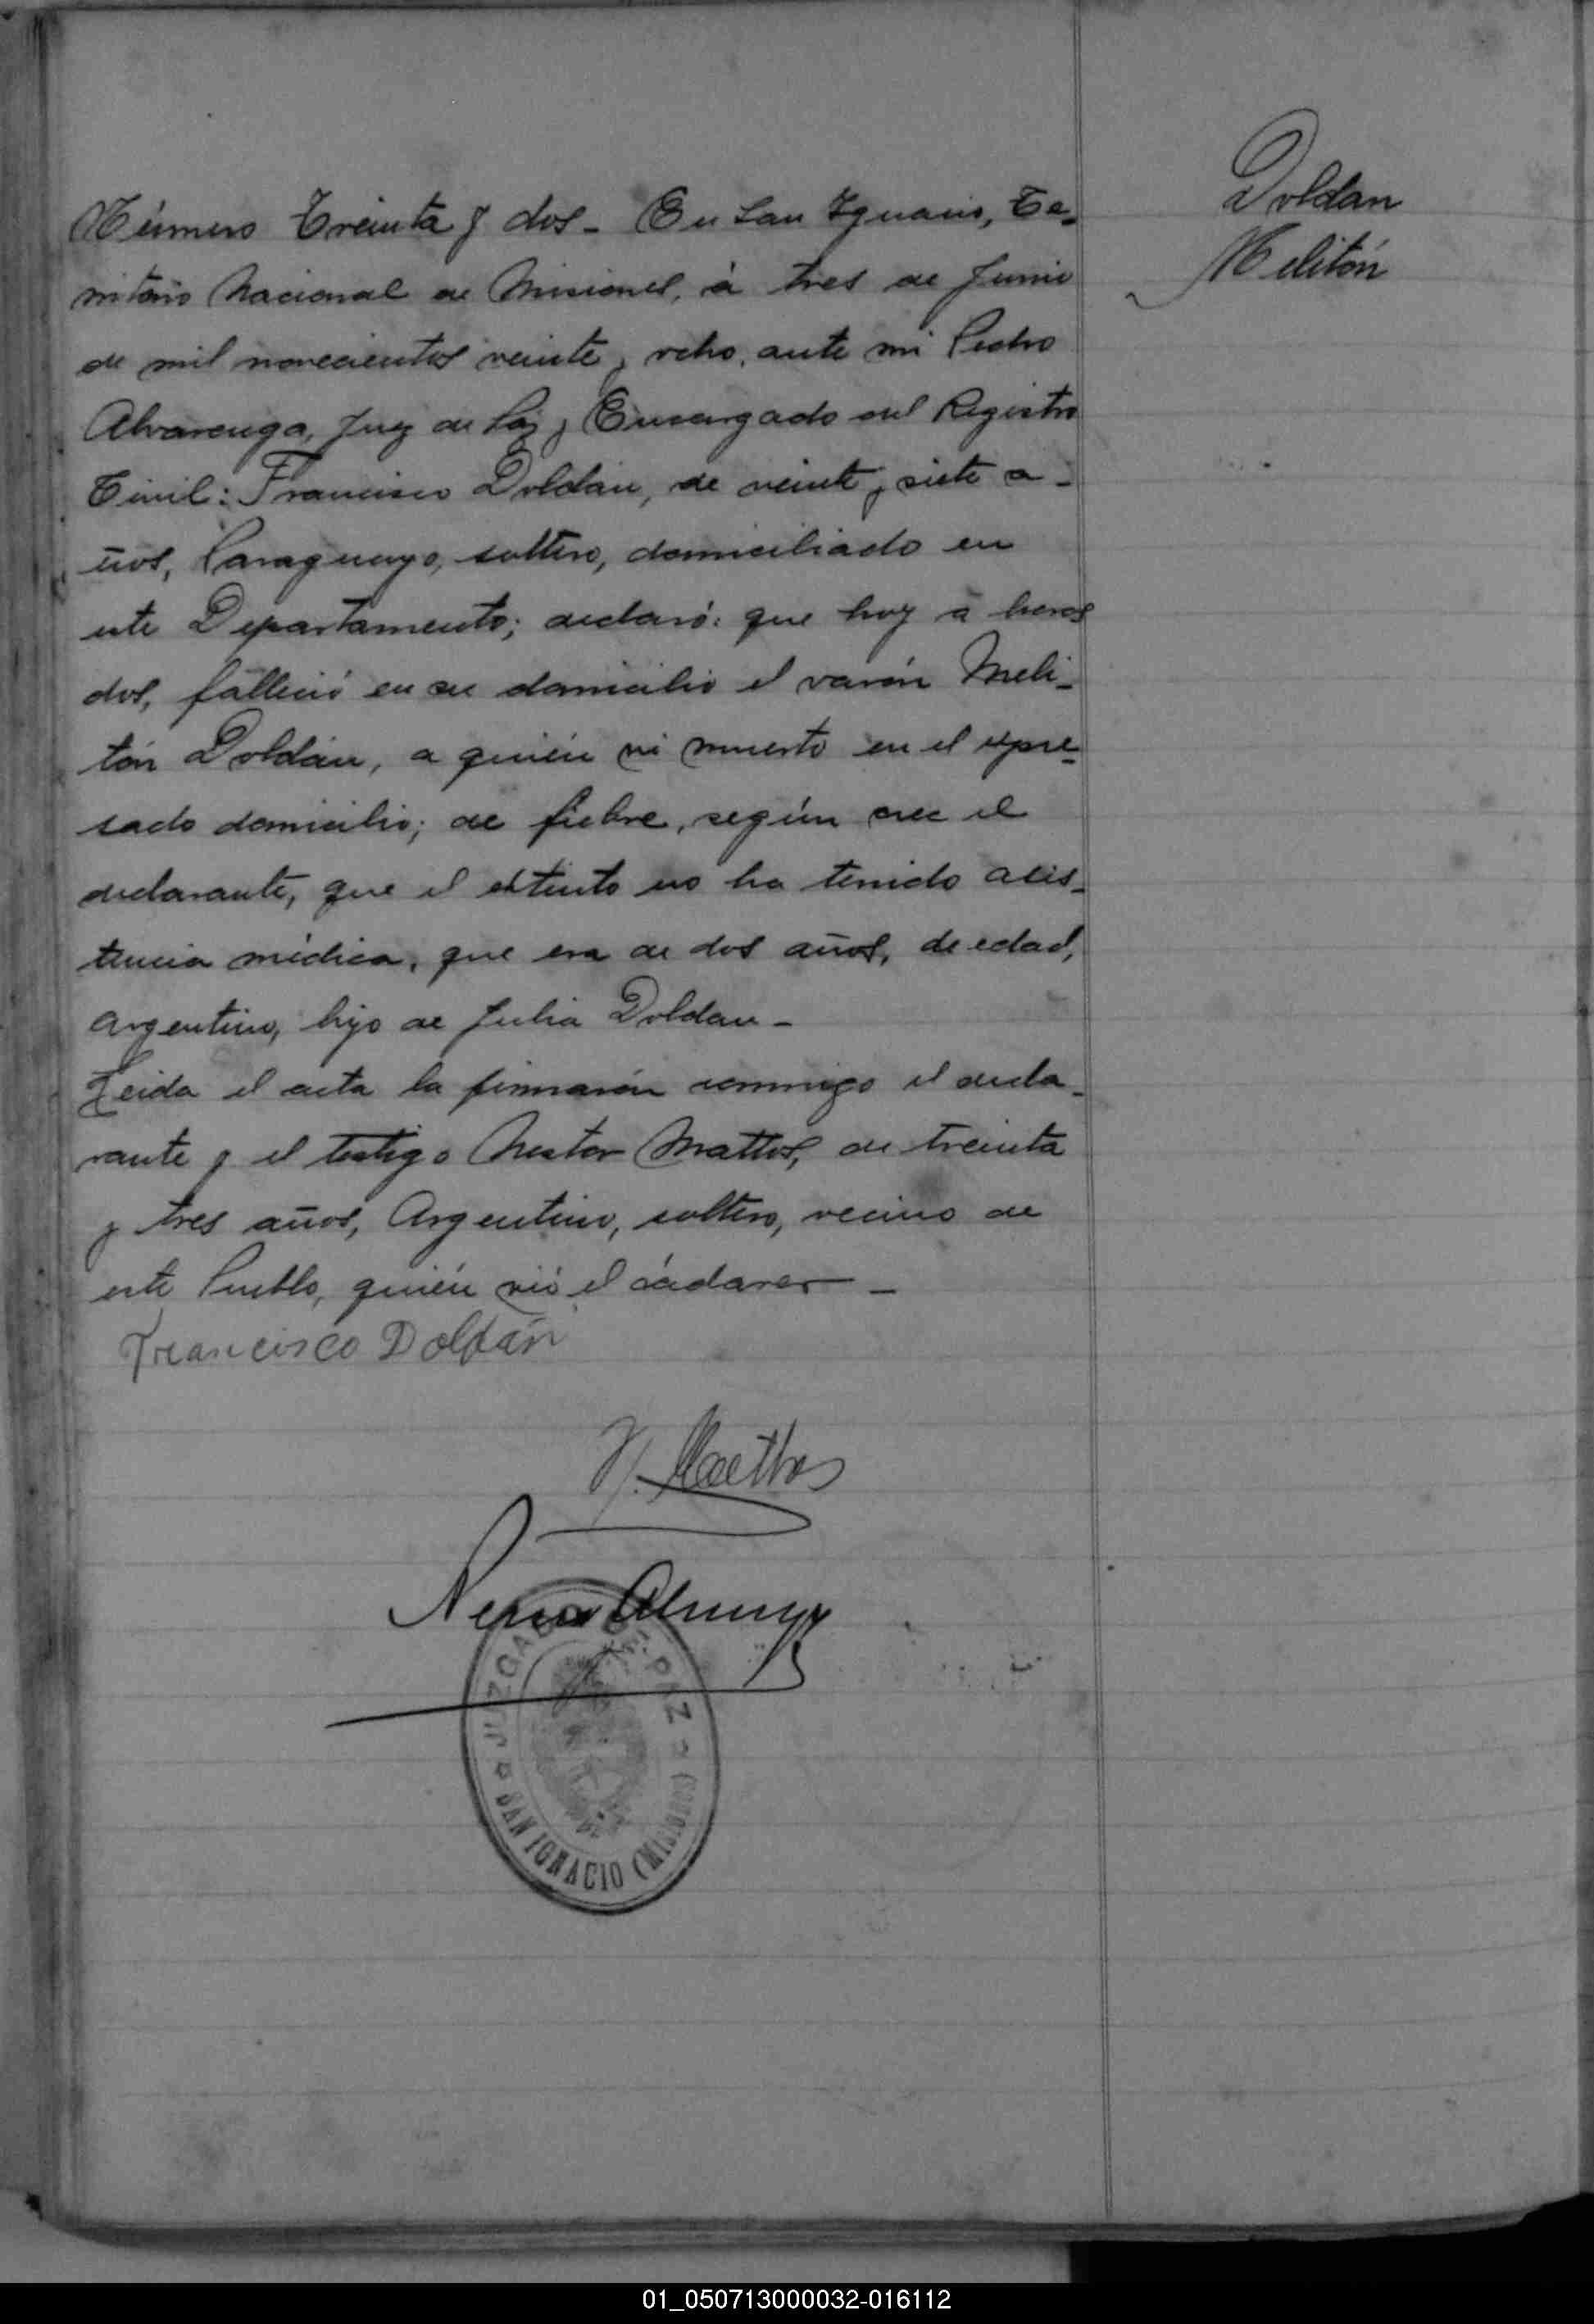 Doldan
Melitón
Número Treinta y dos - En San Ignacio, Te-
rritorio Nacional de Misiones, à tres de Junio
de mil novecientos veinte y ocho, ante mi Pedro
Alvarenga, Juez de Paz y Encargado del Registro
Civil: Francisco Doldán, de veinte y siete a-
ños, Paraguayo, soltero, domiciliado en
este Departamento; declaró: que hoy a horas
dos, falleció en su domicilio el varón Meli-
tón Doldán, a quién vi muerto en el expre-
sado domicilio; de fiebre, según cree el
declarante, que el extinto no ha tenido asis-
tencia médica, que era de dos años, de edad,
Argentino, hijo de Julia Doldan -
Leida el acta la firmarón conmigo el decla-
rante y el testigo Nestor Mattos, de treinta
y tres años, Argentino, soltero, vecino de
este Pueblo, quién vió el cádaver -
Francisco Doldán
N. Matthos
JUZGADO DE PAZ
SAN IGNACIO (MISIONES)
01_050713000032-016112